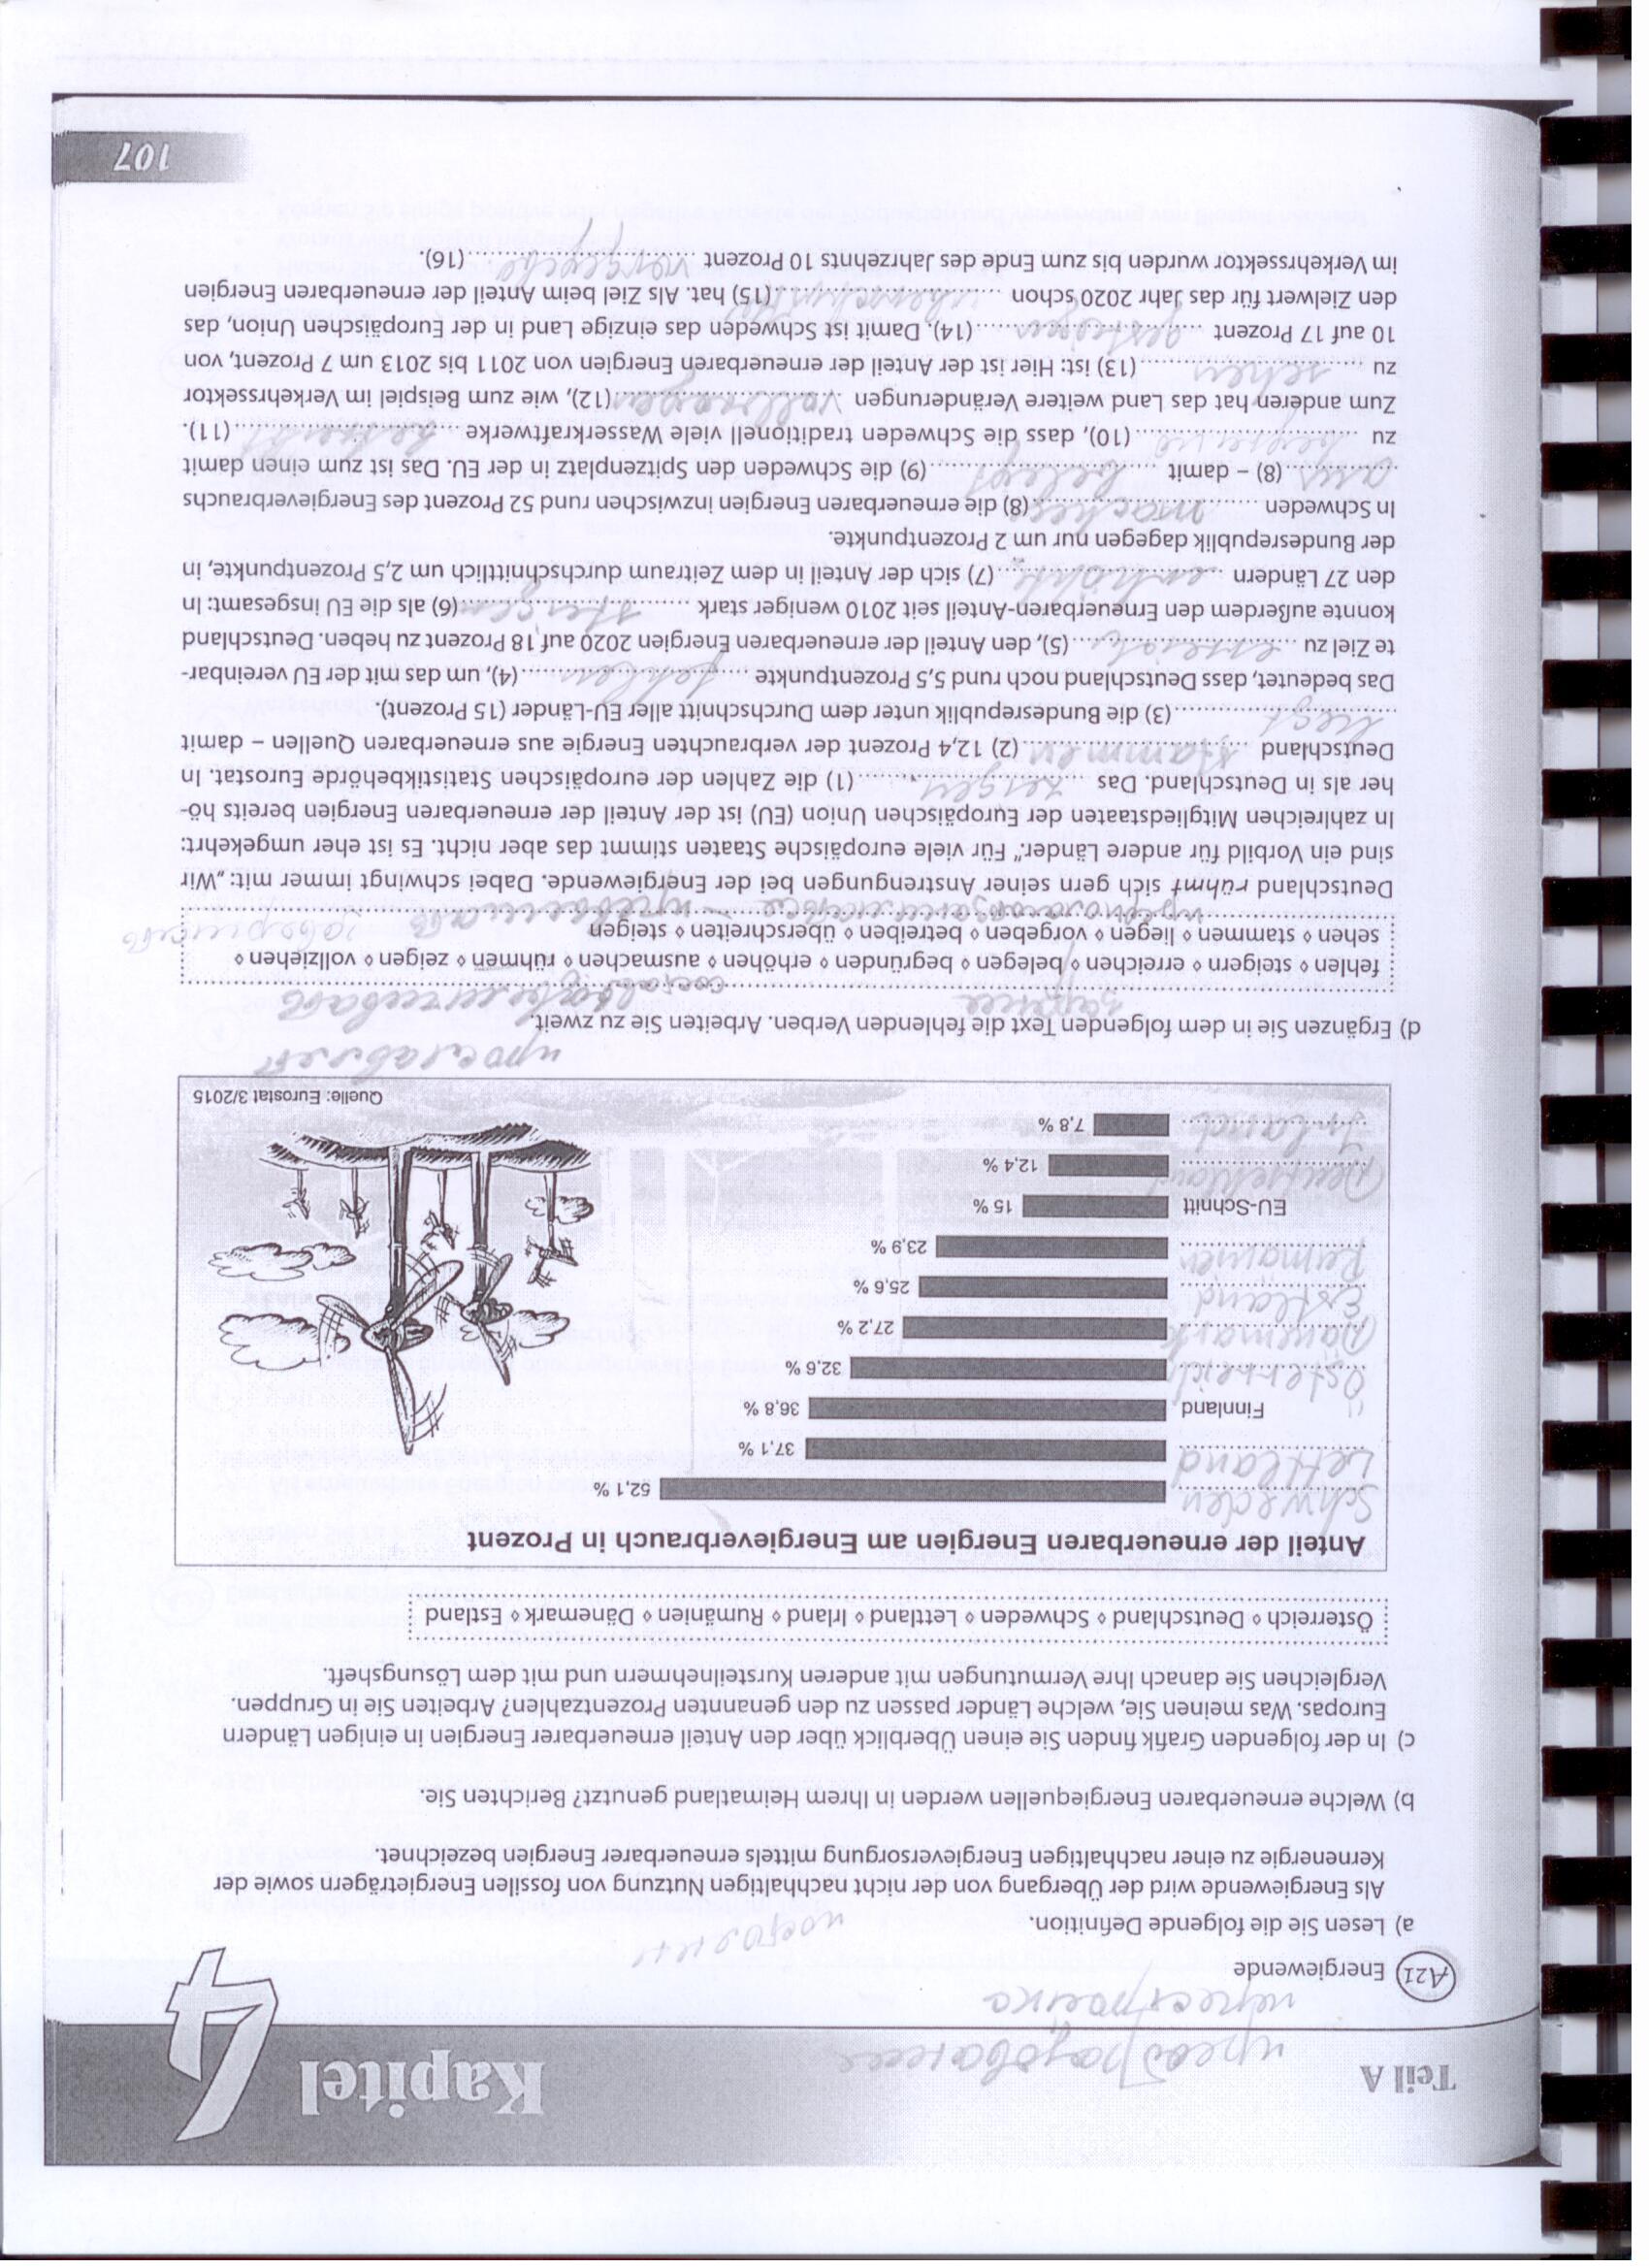 Teil A
Kapitel 4
преобразование
перестройка
A21 Energiewende
a) Lesen Sie die folgende Definition.
Als Energiewende wird der Übergang von der nicht nachhaltigen Nutzung von fossilen Energieträgern sowie der
Kernenergie zu einer nachhaltigen Energieversorgung mittels erneuerbarer Energien bezeichnet.
b) Welche erneuerbaren Energiequellen werden in Ihrem Heimatland genutzt? Berichten Sie.
c) In der folgenden Grafik finden Sie einen Überblick über den Anteil erneuerbarer Energien in einigen Ländern
Europas. Was meinen Sie, welche Länder passen zu den genannten Prozentzahlen? Arbeiten Sie in Gruppen.
Vergleichen Sie danach Ihre Vermutungen mit anderen Kursteilnehmern und mit dem Lösungsheft.
Österreich ⋄ Deutschland ⋄ Schweden ⋄ Lettland ⋄ Irland ⋄ Rumänien ⋄ Dänemark ⋄ Estland
Anteil der erneuerbaren Energien am Energieverbrauch in Prozent
Schweden 52,1 %
Lettland 37,1 %
Finnland 36,8 %
Österreich 32,6 %
Dänemark 27,2 %
Estland 25,6 %
Rumänien 23,9 %
EU-Schnitt 15 %
Deutschland 12,4 %
Irland 7,8 %
Quelle: Eurostat 3/2015
прославлят
d) Ergänzen Sie in dem folgenden Text die fehlenden Verben. Arbeiten Sie zu zweit.
fehlen ⋄ steigern ⋄ erreichen ⋄ belegen ⋄ begründen ⋄ erhöhen ⋄ ausmachen ⋄ rühmen ⋄ zeigen ⋄ vollziehen ⋄
sehen ⋄ stammen ⋄ liegen ⋄ vorgeben ⋄ betreiben ⋄ überschreiten ⋄ steigen
превышать завершать
Deutschland rühmt sich gern seiner Anstrengungen bei der Energiewende. Dabei schwingt immer mit: „Wir
sind ein Vorbild für andere Länder.“ Für viele europäische Staaten stimmt das aber nicht. Es ist eher umgekehrt:
In zahlreichen Mitgliedstaaten der Europäischen Union (EU) ist der Anteil der erneuerbaren Energien bereits hö-
her als in Deutschland. Das zeigen (1) die Zahlen der europäischen Statistikbehörde Eurostat. In
Deutschland stammen (2) 12,4 Prozent der verbrauchten Energie aus erneuerbaren Quellen – damit
liegt (3) die Bundesrepublik unter dem Durchschnitt aller EU-Länder (15 Prozent).
Das bedeutet, dass Deutschland noch rund 5,5 Prozentpunkte fehlen (4), um das mit der EU vereinbar-
te Ziel zu (5), den Anteil der erneuerbaren Energien 2020 auf 18 Prozent zu heben. Deutschland
konnte außerdem den Erneuerbaren-Anteil seit 2010 weniger stark steigen (6) als die EU insgesamt: In
den 27 Ländern erhöhte (7) sich der Anteil in dem Zeitraum durchschnittlich um 2,5 Prozentpunkte, in
der Bundesrepublik dagegen nur um 2 Prozentpunkte.
In Schweden machen (8) die erneuerbaren Energien inzwischen rund 52 Prozent des Energieverbrauchs
aus (8) – damit belegt (9) die Schweden den Spitzenplatz in der EU. Das ist zum einen damit
zu (10), dass die Schweden traditionell viele Wasserkraftwerke betreibt (11).
Zum anderen hat das Land weitere Veränderungen vollzogen (12), wie zum Beispiel im Verkehrssektor
zu sehen (13) ist: Hier ist der Anteil der erneuerbaren Energien von 2011 bis 2013 um 7 Prozent, von
10 auf 17 Prozent (14). Damit ist Schweden das einzige Land in der Europäischen Union, das
den Zielwert für das Jahr 2020 schon (15) hat. Als Ziel beim Anteil der erneuerbaren Energien
im Verkehrssektor wurden bis zum Ende des Jahrzehnts 10 Prozent (16).
107